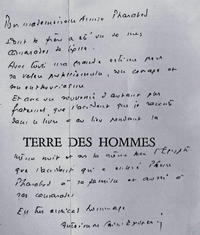 Pour mademoiselle Pharabod
Dont le frère a été un de mes
camarades de ligne.
Avec toute ma grande estime pour
sa valeur professionnelle, son courage et
son enthousiasme
Et avec un souvenir d'autant plus
fraternel que l'accident que je raconte
dans ce livre a eu lieu pendant la
TERRE DES HOMMES
même nuit et sur la même
que l'accident qui a enlevé
Pharabod à sa famille et aussi à
ses camarades
En très amical hommage
Antoine de Saint Exupéry